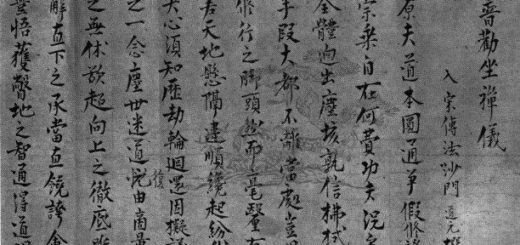 普勸坐禪儀
入宋傳法沙門 道元
原夫道本圓通爭假修
宗乘自在何費功夫況
全體逈出塵埃孰信拂拭
手段大都不離當處豈
修行之脚頭然而毫釐有
差天地懸隔違順纔起紛
失心須知歷劫輪迴還因擬議
之一念塵世迷道由商量
之無休欲超向上之徹底唯
解直下之承當直饒誇會
豐悟獲瞥地之智通得道